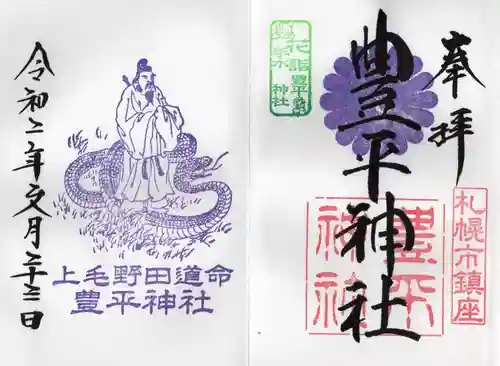 奉拝
豊平神社
札幌市鎮座
豊平神社
花詣
豊平
神社
令和二年文月二十三日
上毛野田道命
豊平神社